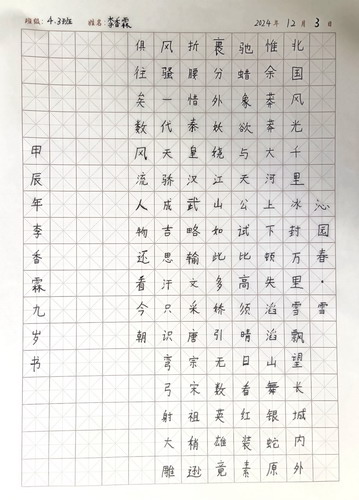 班级: 4.3班 姓名: 李香霖 2024年12月3日
沁园春·雪
北国风光千里冰封万里雪飘望长城内外
惟余莽莽大河上下顿失滔滔山舞银蛇原
驰蜡象欲与天公试比高须晴日看红装素
裹分外妖绕江山如此多娇引无数英雄竟
折腰惜秦皇汉武略输文采唐宗宋祖稍逊
风骚一代天骄成吉思汗只识弯弓射大雕
俱往矣数风流人物还看今朝
甲辰年李香霖九岁书